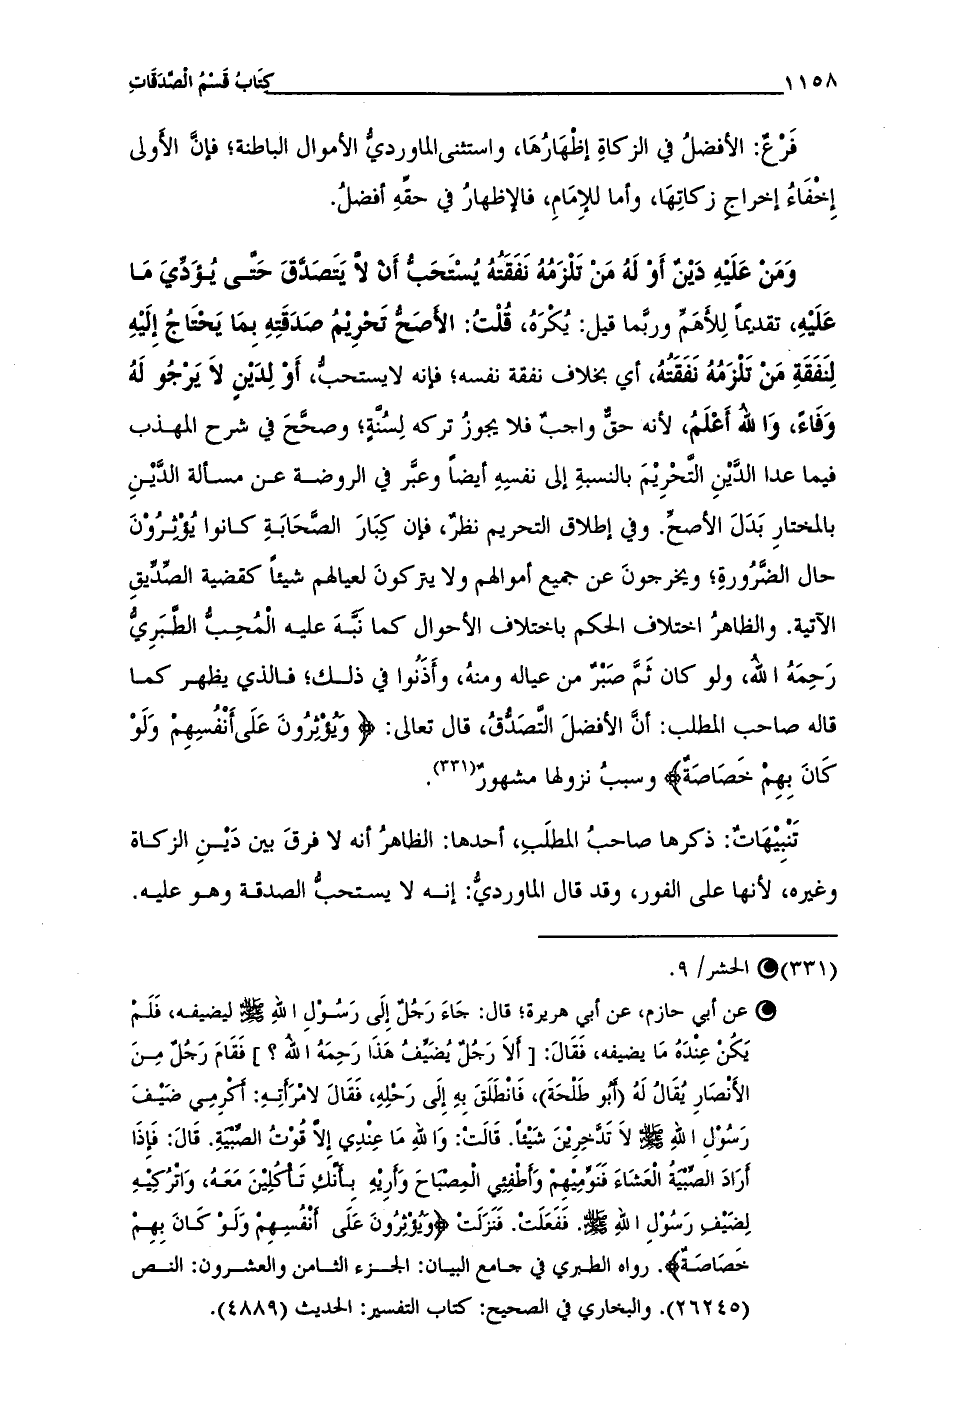 ١١٥٨ كِتَابُ قَسْمُ الْصَّدَقَاتِ
فَرْعٌ: الأفضلُ في الزكاةِ إظْهَارُهَا، واستثنى الماورديُّ الأموال الباطنة؛ فإنَّ الأَولى
إخْفَاءُ إخراجِ زكاتِهَا، وأما للإِمَامِ، فالإظهارُ في حقِّهِ أفضلُ.
وَمَنْ عَلَيْهِ دَيْنٌ أَوْ لَهُ مَنْ تَلْزَمُهُ نَفَقَتُهُ يُسْتَحَبُّ أَنْ لاَ يَتَصَدَّقَ حَتَّى يُؤَدِّيَ مَا
عَلَيْهِ، تقديماً لِلأَهَمِّ وربَّما قيل: يُكْرَهُ، قُلْتُ: الأَصَحُّ تَحْرِيْمُ صَدَقَتِهِ بِمَا يَحْتَاجُ إِلَيْهِ
لِنَفَقَةِ مَنْ تَلْزَمُهُ نَفَقَتُهُ، أي بخلاف نفقة نفسه؛ فإنه لايستحبُّ، أَوْ لِدَيْنٍ لاَ يَرْجُو لَهُ
وَفَاءً، وَا للهُ أَعْلَمُ، لأنه حقٌّ واجبٌ فلا يجوزُ تركه لِسُنَّةٍ؛ وصحَّحَ في شرح المهذب
فيما عدا الدَّيْنِ التَّحْرِيْمَ بالنسبةِ إلى نفسِهِ أيضاً وعبَّر في الروضة عن مسألة الدَّيْنِ
بالمختارِ بَدَلَ الأصحِّ. وفي إطلاق التحريم نظرٌ، فإن كِبَارَ الصَّحَابَةِ كانوا يُؤْثِرُوْنَ
حال الضَّرُورةِ؛ ويخرجونَ عن جميع أموالهم ولا يتركونَ لعيالهم شيئاً كقضية الصِّدِّيقِ
الآتية. والظاهرُ اختلاف الحكم باختلاف الأحوال كما نَبَّهَ عليه الْمُحِبُّ الطَّبَرِيُّ
رَحِمَهُ ا للهُ، ولو كان ثَمَّ صَبْرٌ من عياله ومنهُ، وأَذَنُوا في ذلك؛ فالذي يظهر كما
قاله صاحب المطلب: أنَّ الأفضلَ التَّصَدُّقُ، قال تعالى: ﴿ وَيُؤْثِرُونَ عَلَى أَنْفُسِهِمْ وَلَوْ
كَانَ بِهِمْ خَصَاصَةٌ﴾ وسببُ نزولها مشهورٌ(٣٣١).
تَنْبِيْهَاتٌ: ذكرها صاحبُ المطلَبِ، أحدها: الظاهرُ أنه لا فرقَ بين دَيْنِ الزكاة
وغيره، لأنها على الفور، وقد قال الماورديُّ: إنه لا يستحبُّ الصدقة وهو عليه.
(٣٣١) الحشر/ ٩.
عن أبي حازم، عن أبي هريرة؛ قال: جَاءَ رَجُلٌ إِلَى رَسُوْلِ ا للهِ ﷺ ليضيفه، فَلَمْ
يَكُنْ عِنْدَهُ مَا يضيفه، فَقَالَ: [ أَلاَ رَجُلٌ يُضَيِّفُ هَذَا رَحِمَهُ ا للهُ ؟ ] فَقَامَ رَجُلٌ مِنَ
الأَنْصَارِ يُقَالُ لَهُ (أَبُو طَلْحَةَ)، فَانْطَلَقَ بِهِ إِلَى رَحْلِهِ، فَقَالَ لامْرَأَتِهِ: أَكْرِمِي ضَيْفَ
رَسُوْلِ ا للهِ ﷺ لاَ تَدَّخِرِيْنَ شَيْئاً. قَالَتْ: وَا للهِ مَا عِنْدِي إِلاَّ قُوْتُ الصِّبْيَةِ. قَالَ: فَإِذَا
أَرَادَ الصِّبْيَةُ الْعَشَاءَ فَنَوِّمِيْهِمْ وَأَطْفِئِي الْمِصْبَاحَ وَأَرِيْهِ بِأَنَّكِ تَأْكُلِيْنَ مَعَهُ، وَاتْرُكِيْهِ
لِضَيْفِ رَسُوْلِ ا للهِ ﷺ. فَفَعَلَتْ. فَنَزَلَتْ ﴿وَيُؤْثِرُونَ عَلَى أَنْفُسِهِمْ وَلَوْ كَانَ بِهِمْ
خَصَاصَةٌ﴾. رواه الطبري في جامع البيان: الجزء الثامن والعشرون: النص
(٢٦٢٤٥). والبخاري في الصحيح: كتاب التفسير: الحديث (٤٨٨٩).